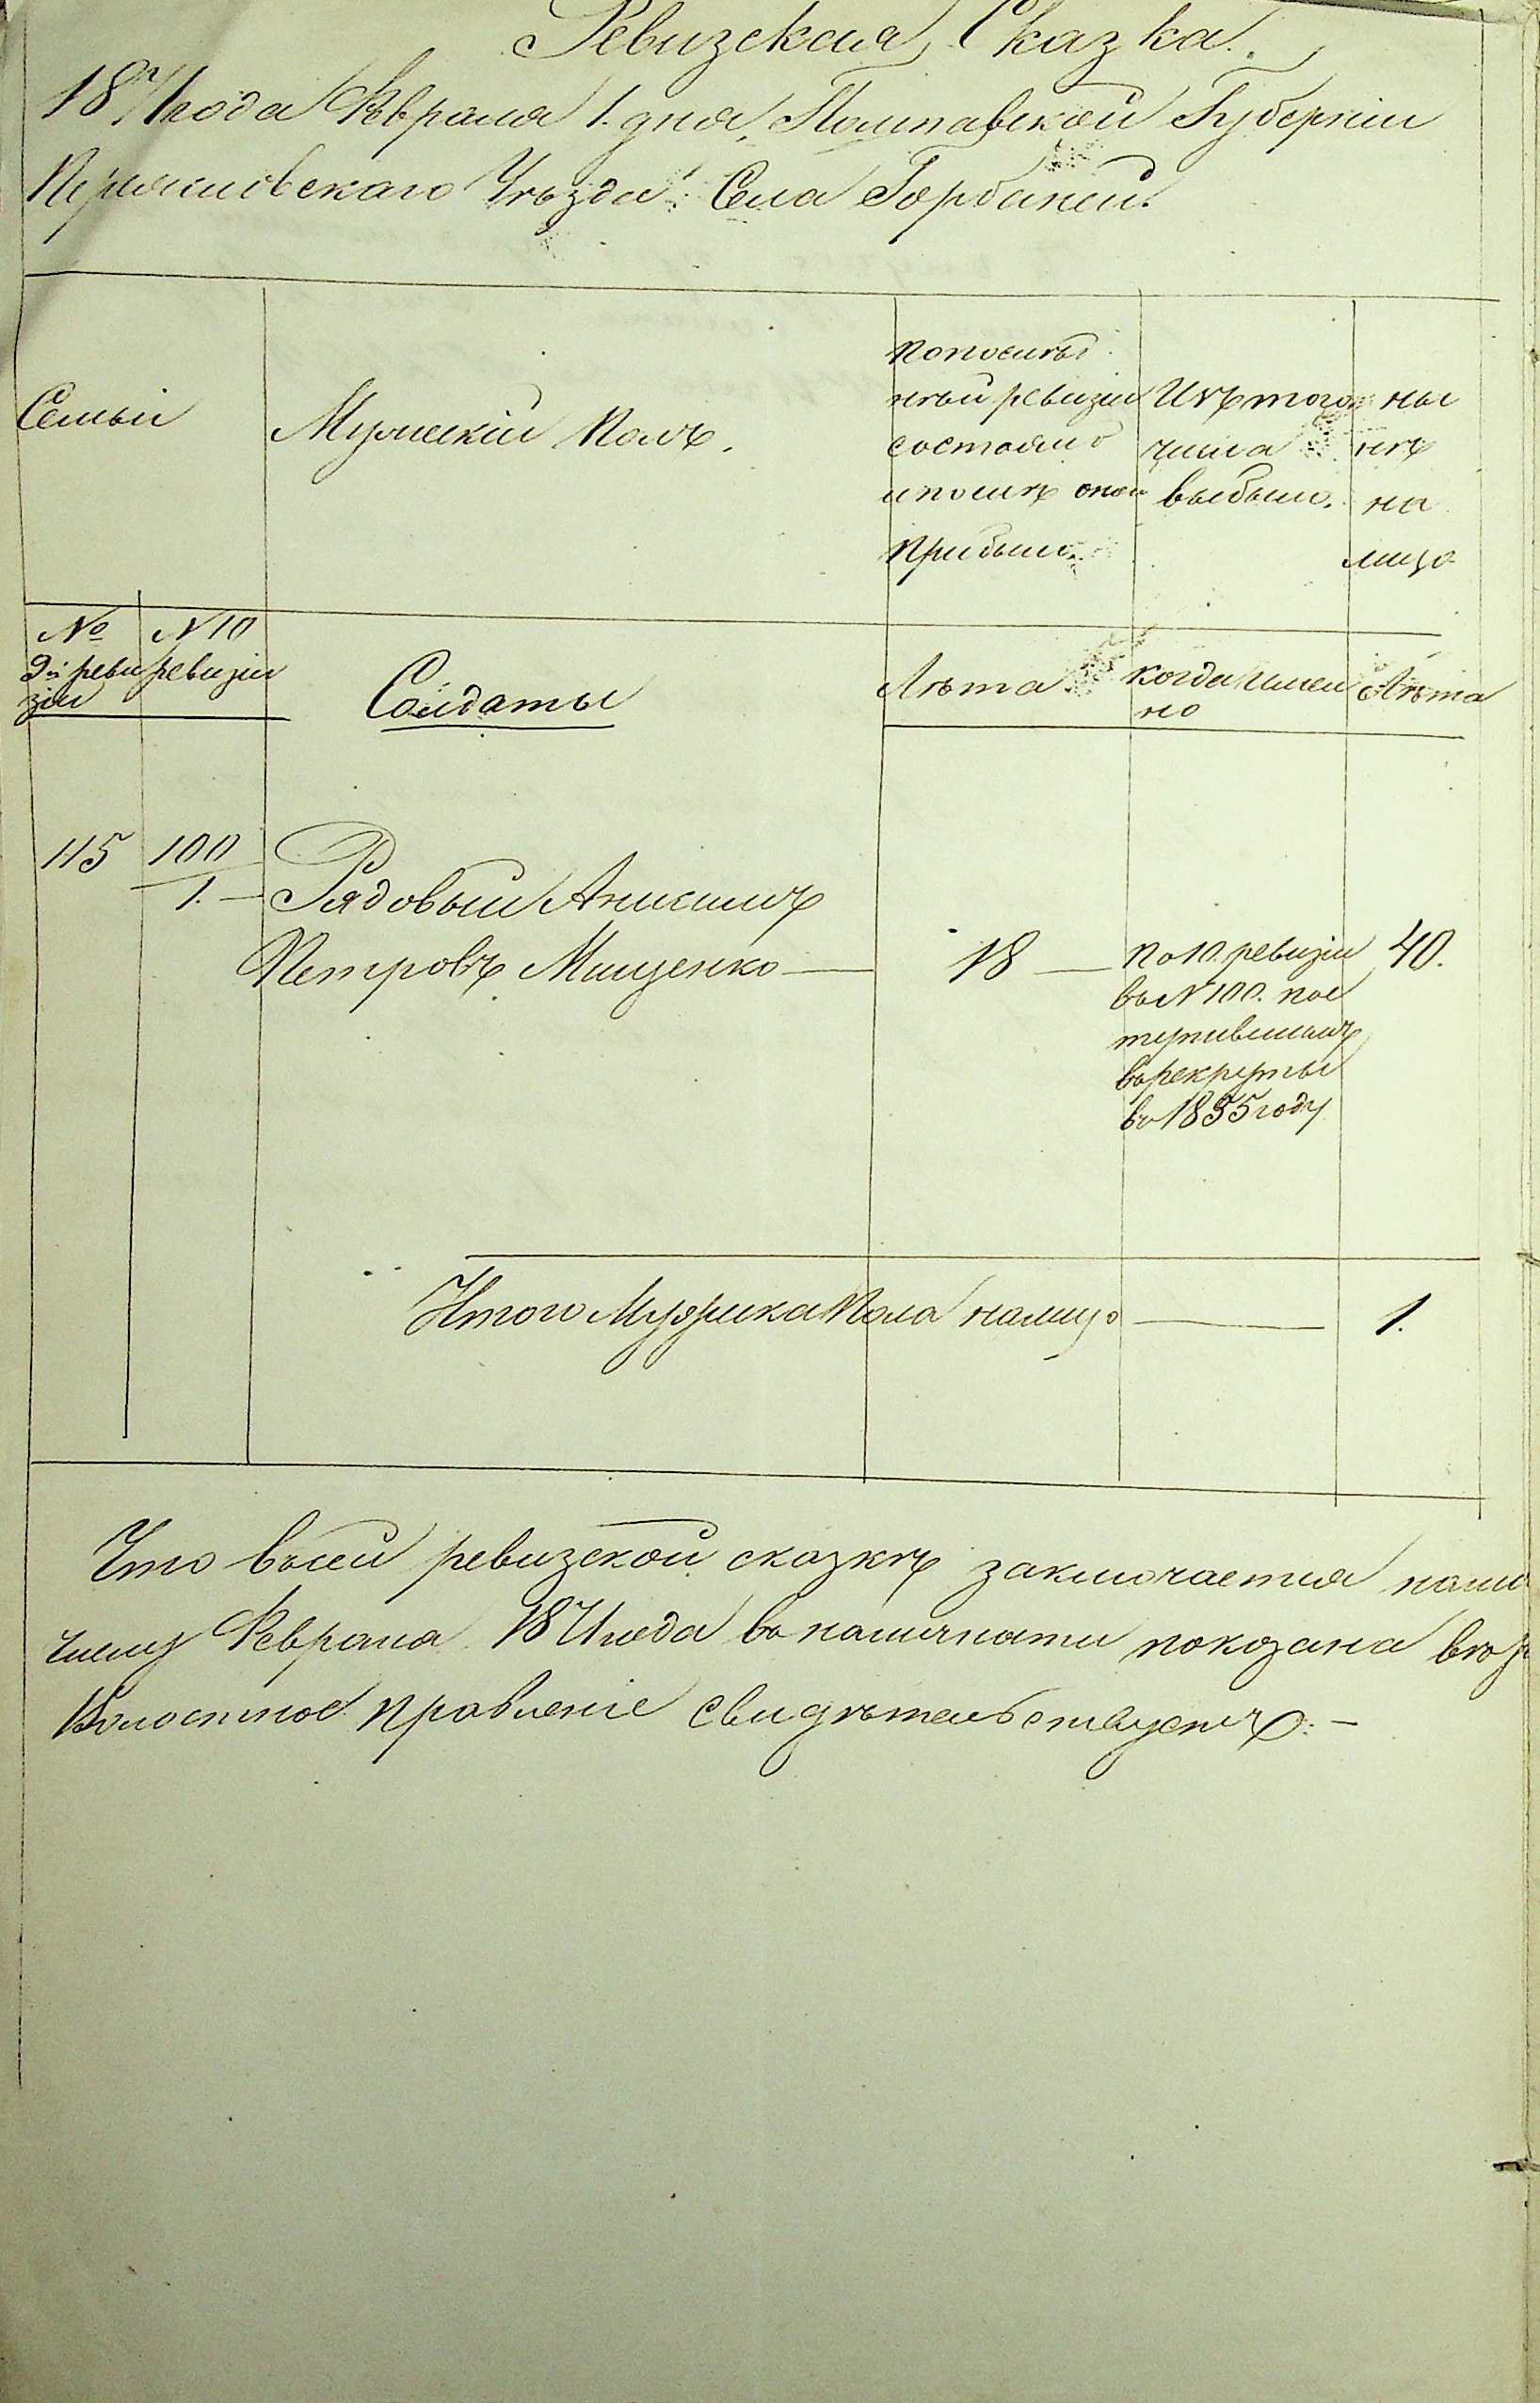 Ревизская Сказка.
1871 года Февраля 1. дня, Полтавской Губерніи
Переяславскаго Уѣзда: Села Горбаней.
Семьи
Мужескій Полъ.
По послѣд
ней ревизіи
состояло
и послѣ оной
прибыло.
Изъ того
числа
выбыло.
ны
нѣ
на
лицо
№ 9й реви
зіи
N 10
ревизіи
Солдаты
Лѣта
когда имен
но
Лѣта
115 100
1. — Рядовый Анисимъ
Петровъ Мищенко — 18 — 40.
По 10. ревизіи
въ N 100. пос
тупившимъ
въ рекруты
въ 1855 году
Итого Мужеска Пола налицо — 1.
Что въ сей ревизской сказкѣ заключается
числу Февраля 1871 года въ наличности показана
Волостное правленіе свидѣтельствуетъ. —